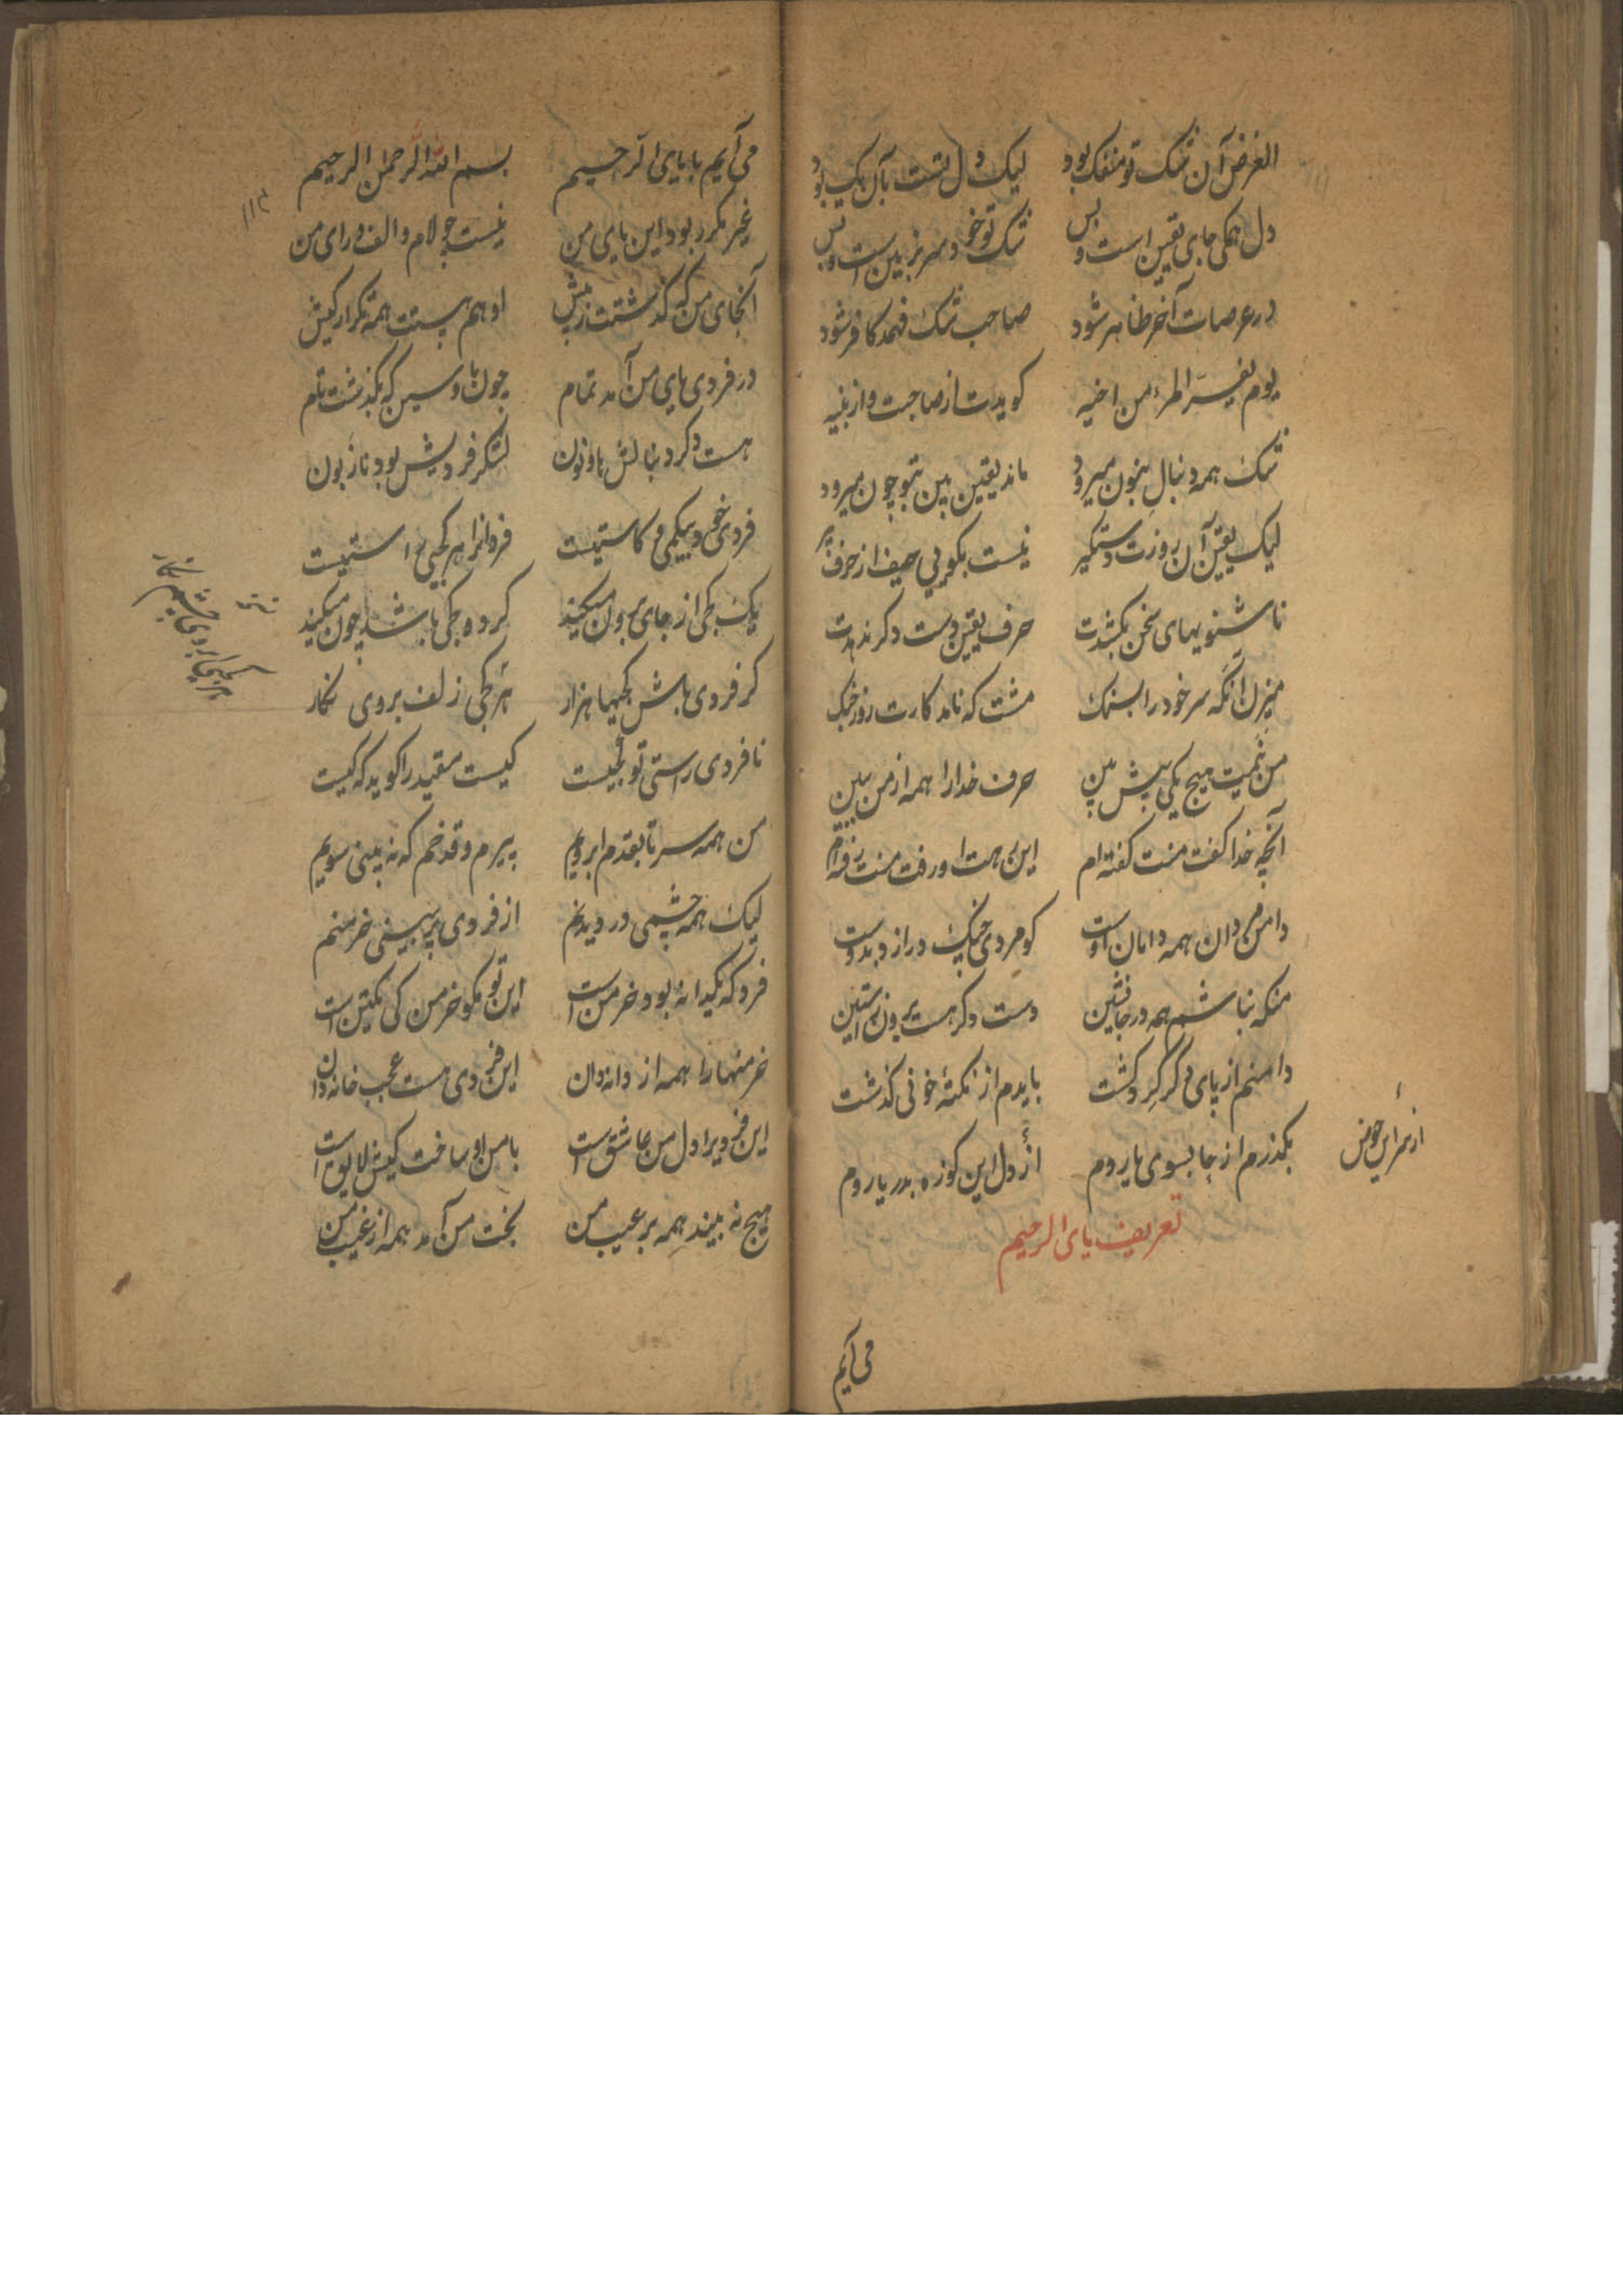 الغرض آن شک تو منفک بود لیک دل تست بآن یک بود
دل همگی جای یقین است و بس شک تو خود سر نزیدن است و بس
در عرصات آخر ظاهر شود صاحب شک فهمد کافر شود
یوم یفرّ المرء من اخیه کویدت از صاحبت و از بنیه
شک همه دنبال بنون میرود ماند یقین بین بتو چون میرود
لیک یقین آن روزت دستکیر نیست بکویی حیف از حرف پیر
ناشنویهای سخن بکشدت حرف یقین دست دکر ندهدت
میزن آنکه سر خود را بسنک مشت که نامد کارت روز جنک
من نمیت هیچ یکی پیش بین حرف خدا را همه از من ببین
آنچه خدا کفت منت کفته ام این همه او رفت منت رفته ام
دامن من دان همه دامان اوست کو مردی جنک دراز دو دست
منکه نباشم همه در جانشین دست دکر هست برون ز آستین
دامنم از پای دکر کرد کشت بایدم از نکتهٔ خونی کذشت
بکذرم از جا بسوی یا روم از دل این کوزه بدریا روم
از سر این حوض
تعریف یای الرحیم
می آیم
می آیم با یای الرحیم بسم الله الرحمن الرحیم
۱۱۲
غیر مکرر بود این یای من نیست چو لام و الف و رای من
آنجای من که کذشتت ز پیش او هم هستت همه تکرار کیش
در فردی یای من آمد تمام چون با و سین که بکذشت نام
هست دکر دنبالش با و نون لشکر فردیش بود نازبون
فردی خود بیکمی و کاستیست فردانرا هر کجیی راستیست
یک کجی از جای برون میکند کرد و کجی باشد چون میکند
کر فردی باش کجیها هزار هر کجی زلف بروی نکار
نسخه
هر کجی ابروی چشم نکار
نا فردی راستی تو کجیست کیست مقید را کوید که کیست
من همه سر تا بقدم ابرویم پیرم و قد خم که نه بینی سویم
لیک همه چشمی در دیدنم از فردی پر بینی خرمنم
فرد که یکدانه بود خرمن است این تو مکو خرمن کی یکتن است
خرمنها را همه از دانه دان این فردی هست عجب خانه دان
این فردیرا دل من عاشق است با من او ساخت کیش لایق است
هیچ نه بیند همه بر عیب من بخت من آمد همه از غیب من